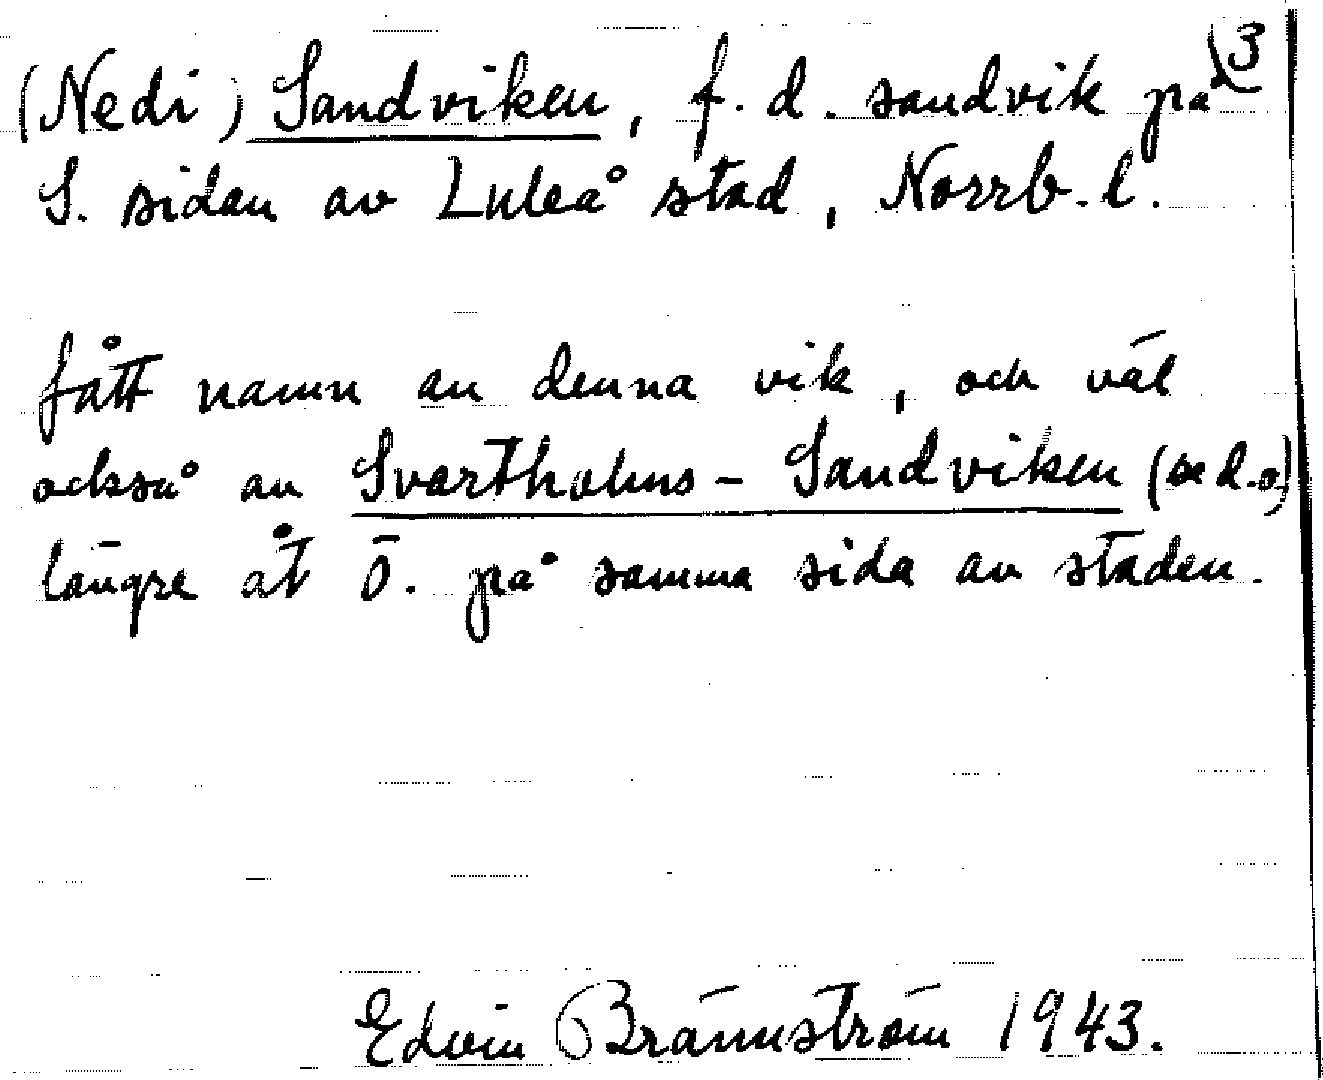 3
(Nedi) Sandviken, f. d. sandvik på
S. sidan av Luleå stad, Norrb. l.
fått namn av denna vik, och väl
också av Svartholms-Sandviken (se d.o)
längre åt Ö. på samma sida av staden.
Edvin Brännström 1943.